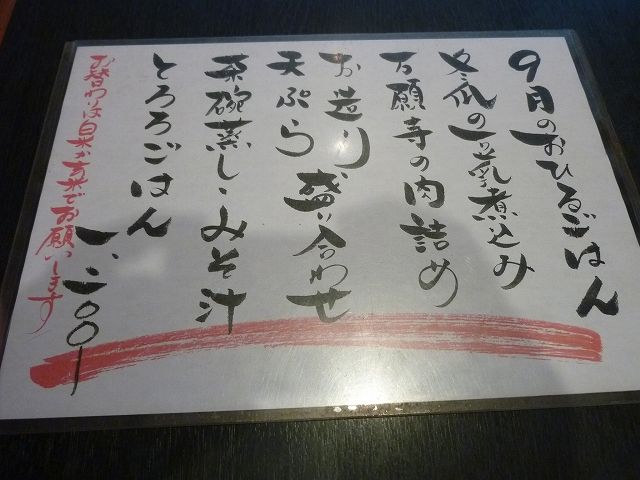 9月のおひるごはん
冬瓜の豆乳煮込み
万願寺の肉詰め
お造り盛り合わせ
天ぷら
茶碗蒸し・みそ汁
とろろごはん
一、二〇〇
お替わりは白米か玄米でお願いします